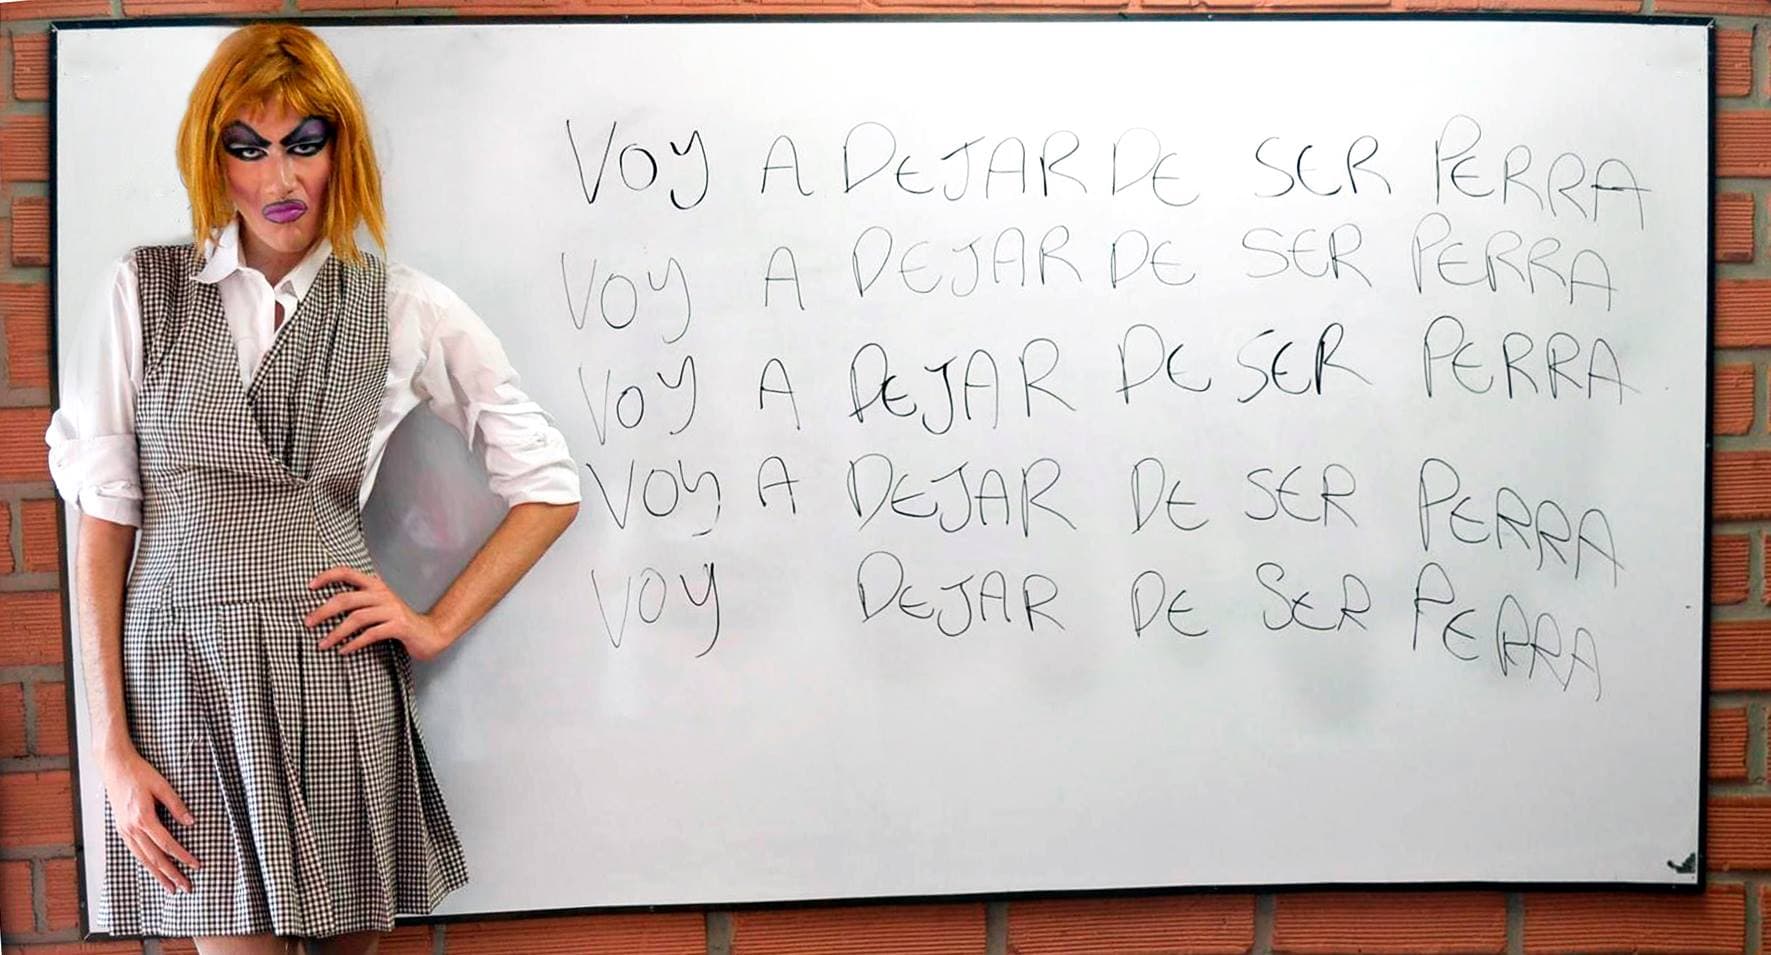 VOY A DEJAR DE SER PERRA
VOY A DEJAR DE SER PERRA
VOY A DEJAR DE SER PERRA
VOY A DEJAR DE SER PERRA
VOY DEJAR DE SER PERRA